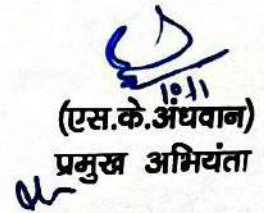 10.11
(एस.के.अंधवान)
प्रमुख अभियंता